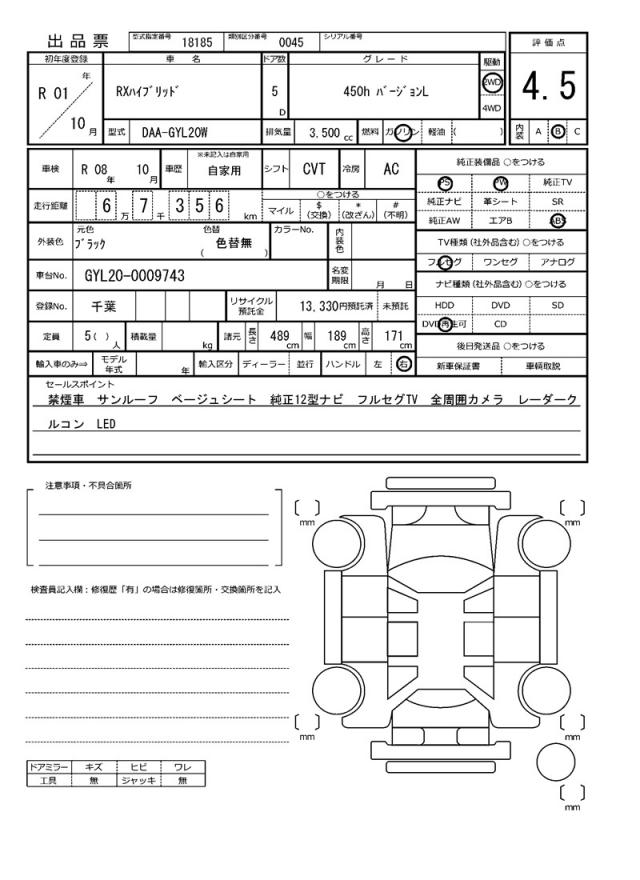 出品票 型式指定番号 18185 類別区分番号 0045 シリアル番号
初年度登録 車 名 ドア数 グレード 駆動 評価点
R 01 年 10 月 RXハイブリッド 5 D 450h バージョンL 2WD 4WD 4.5
型式 DAA-GYL20W 排気量 3,500 cc 燃料 ガソリン 軽油 ( ) 内装 A B C
車検 R 08 年 10 月 車歴 ※未記入は自家用 自家用 シフト CVT 冷房 AC 純正装備品 ○をつける
PS PW 純正TV
走行距離 6 万 7 千 3 5 6 km ○をつける マイル $ (交換) * (改ざん) # (不明) 純正ナビ 革シート SR
純正AW エアB ABS
外装色 元色 ブラック 色替 ( 色替無 ) カラーNo. 内装色 TV種類 (社外品含む) ○をつける
フルセグ ワンセグ アナログ
車台No. GYL20-0009743 名変期限 月 日 ナビ種類 (社外品含む) ○をつける
登録No. 千葉 リサイクル預託金 13,330円預託済 未預託 HDD DVD SD
DVD再生可 CD
定員 5 ( ) 人 積載量 kg 諸元 長さ 489 cm 幅 189 cm 高さ 171 cm 後日発送品 ○をつける
輸入車のみ⇒ モデル年式 年 輸入区分 ディーラー 並行 ハンドル 左 右 新車保証書 車輌取説
セールスポイント
禁煙車 サンルーフ ベージュシート 純正12型ナビ フルセグTV 全周囲カメラ レーダーク
ルコン LED
注意事項・不具合箇所
mm mm
検査員記入欄：修復歴「有」の場合は修復箇所・交換箇所を記入
mm mm
ドアミラー キズ ヒビ ワレ
工具 無 ジャッキ 無
mm